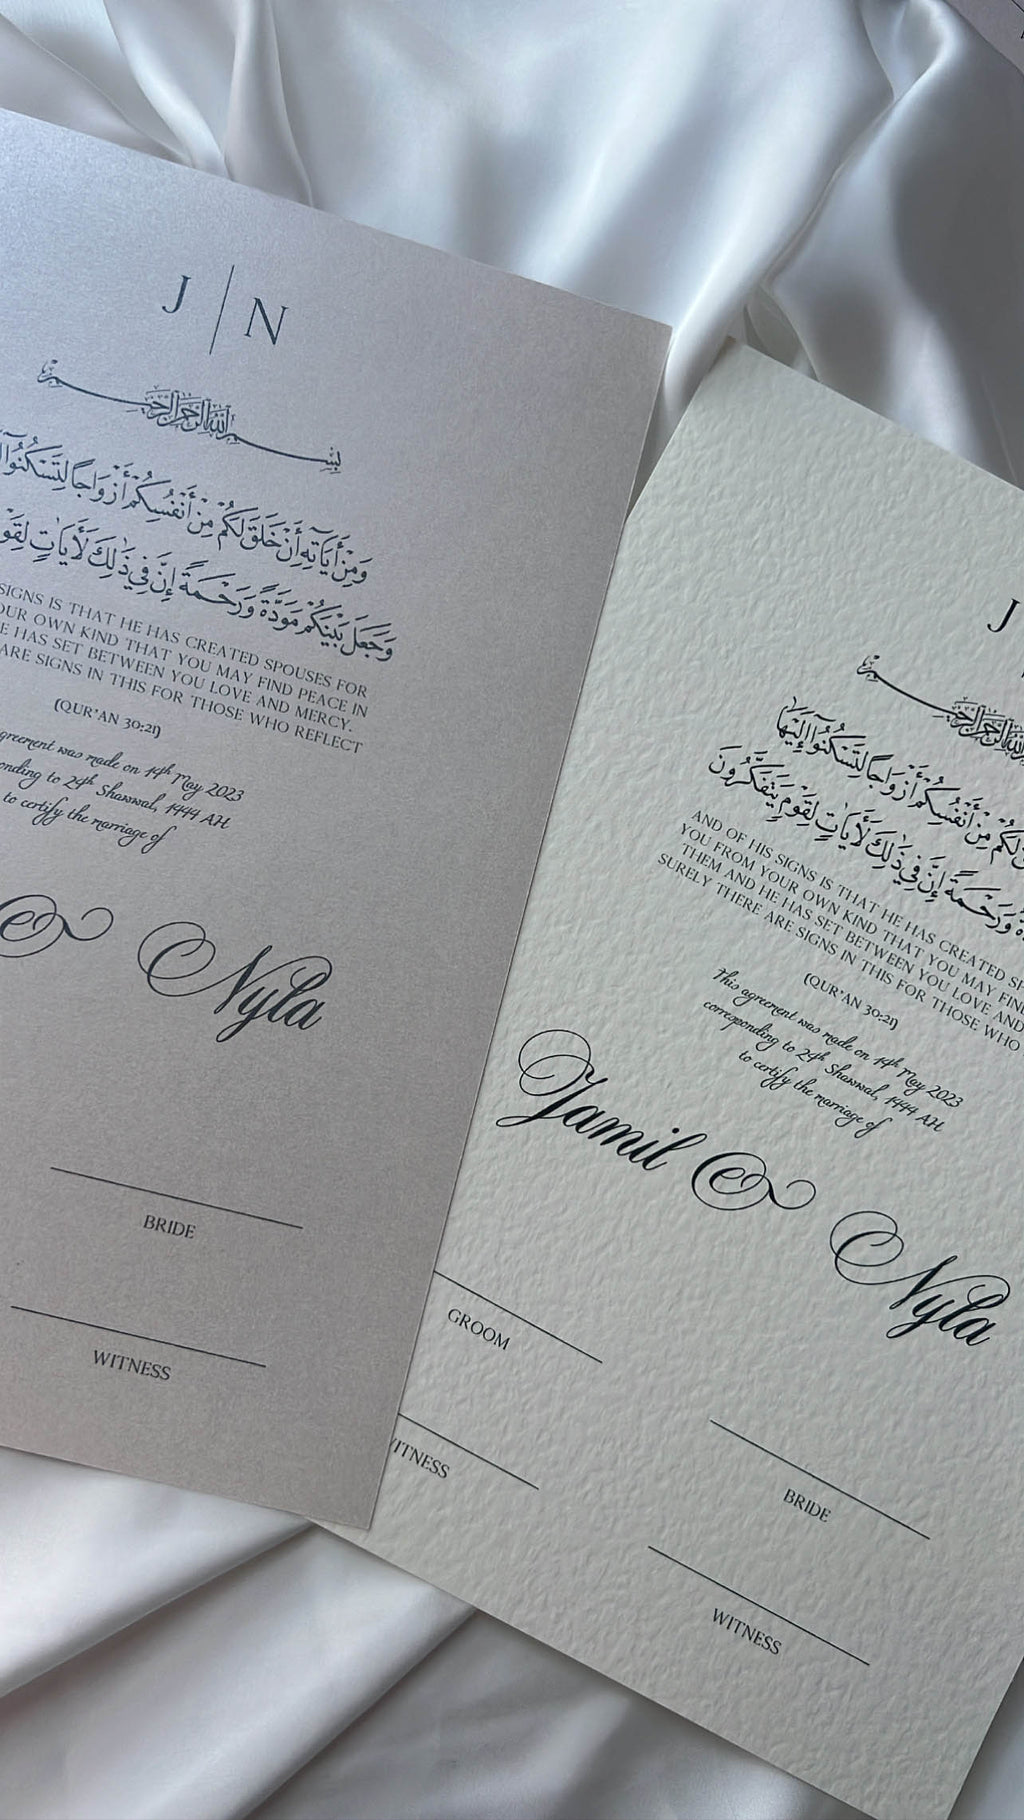 J | N
بِسْمِ اللهِ الرَّحْمٰنِ الرَّحِيْمِ
وَمِنْ أَيَاتِهِ أَنْ خَلَقَ لَكُمْ مِنْ أَنْفُسِكُمْ أَزْوَاجًا لِتَسْكُنُوا
وَجَعَلَ بَيْنَكُمْ مَوَدَّةً وَرَحْمَةً إِنَّ فِي ذٰلِكَ لَأَيَاتٍ
SIGNS IS THAT HE HAS CREATED SPOUSES FOR
OUR OWN KIND THAT YOU MAY FIND PEACE IN
HAS SET BETWEEN YOU LOVE AND MERCY.
ARE SIGNS IN THIS FOR THOSE WHO REFLECT
(QUR'AN 30:21)
agreement was made on 14th May 2023
to 24th Shawwal, 1444 AH
to certify the marriage of
& Nyla
BRIDE
WITNESS
J
بِسْمِ اللهِ الرَّحْمٰنِ الرَّحِيْمِ
مِنْ أَنْفُسِكُمْ أَزْوَاجًا لِتَسْكُنُوا إِلَيْهَا
وَرَحْمَةً إِنَّ فِي ذٰلِكَ لَأَيَاتٍ لِقَوْمٍ يَتَفَكَّرُونَ
AND OF HIS SIGNS IS THAT HE HAS CREATED
YOU FROM YOUR OWN KIND THAT YOU MAY
THEM AND HE HAS SET BETWEEN YOU LOVE AND
SURELY THERE ARE SIGNS IN THIS FOR THOSE WHO
(QUR'AN 30:21)
This agreement was made on 14th May 2023
corresponding to 24th Shawwal, 1444 AH
to certify the marriage of
Jamil & Nyla
GROOM
BRIDE
WITNESS
WITNESS